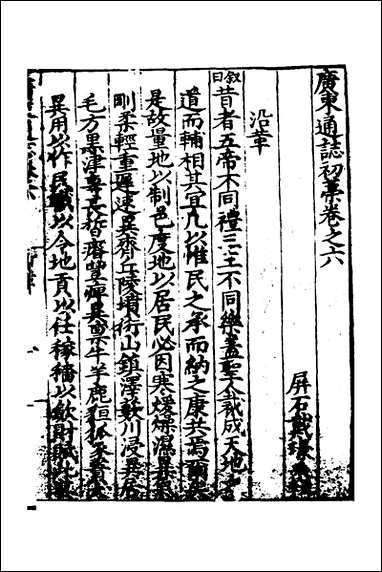 廣東通誌初藁卷之六
屏石戴璟
沿革
叙曰昔者五帝不同禮三王不同樂蓋聖人裁成天地之
道而輔相其宜凡以惟民之承而納之康共焉爾
是故量地以制邑度地以居民必因寒煖燥濕異
剛柔輕重遲速異齊丘陵墳衍山鎮澤藪川浸異居
毛方黑津專長皙瘠豐痺異 牛羊鹿狟狐
異用以作民職以令地貢以任稼穡以歛財賦